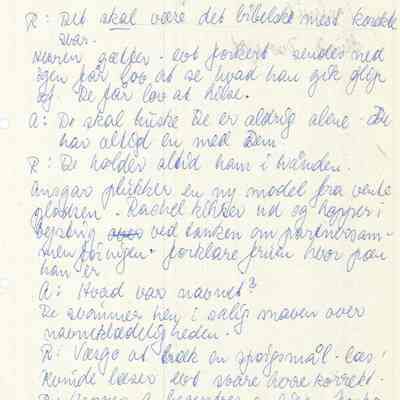 R: Det skal være det bibelske mest korrekte
svar.
Herren gætter - evt forkert sendes ned
igen får lov at se hvad han gik glip
af. De får lov at hilse.
A: De skal huske De er aldrig alene. De
har altid en med Dem.
R: De holder altid ham i hånden.
Ansgar plukker en ny model fra vente
pladsen. Rachel kikker ud og hopper i
ved tanken om partnersam-
menføringen. forklare fruen hvor pæn
han er
A: Hvad var navnet?
De svømmer hen i salig over
hed en.
R: Værge at træk en spørgsmål. læs!
Kunde læser evt svare korrekt.